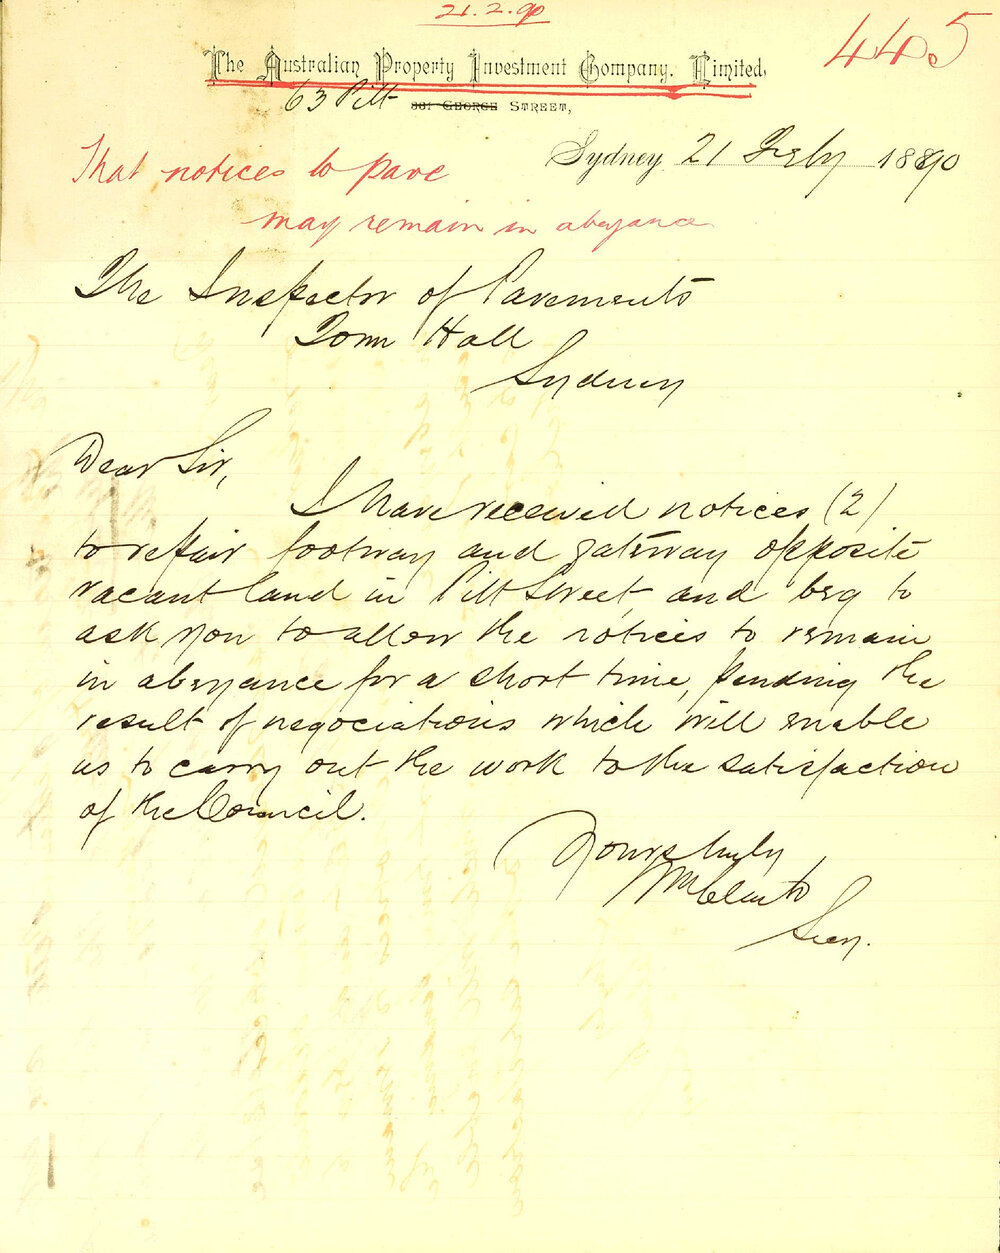 21.2.90
445
The Australian Property Investment Company, Limited,
63 Pitt 361 GEORGE STREET,
Sydney, 21 Feby 1890
That notices to pave
may remain in abeyance
The Inspector of Pavements
Town Hall
Sydney
Dear Sir,
I have received notices (2)
to repair footway and gateway opposite
vacant land in Pitt Street, and beg to
ask you to allow the notices to remain
in abeyance for a short time, pending the
result of negociations which will enable
us to carry out the work to the satisfaction
of the Council.
Yours truly
Wm
Secy.